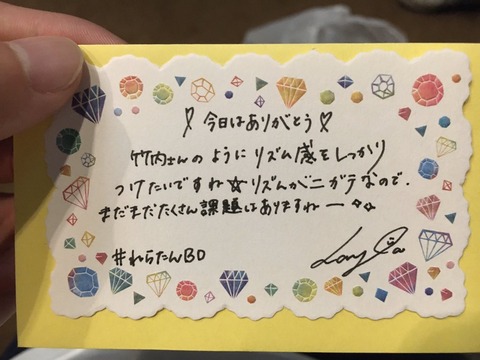 ♡今日はありがとう♡
竹内さんのようにリズム感をしっかり
つけたいですね☆リズムがニガテなので.
まだまだたくさん課題はありますねー
#れらたんBD